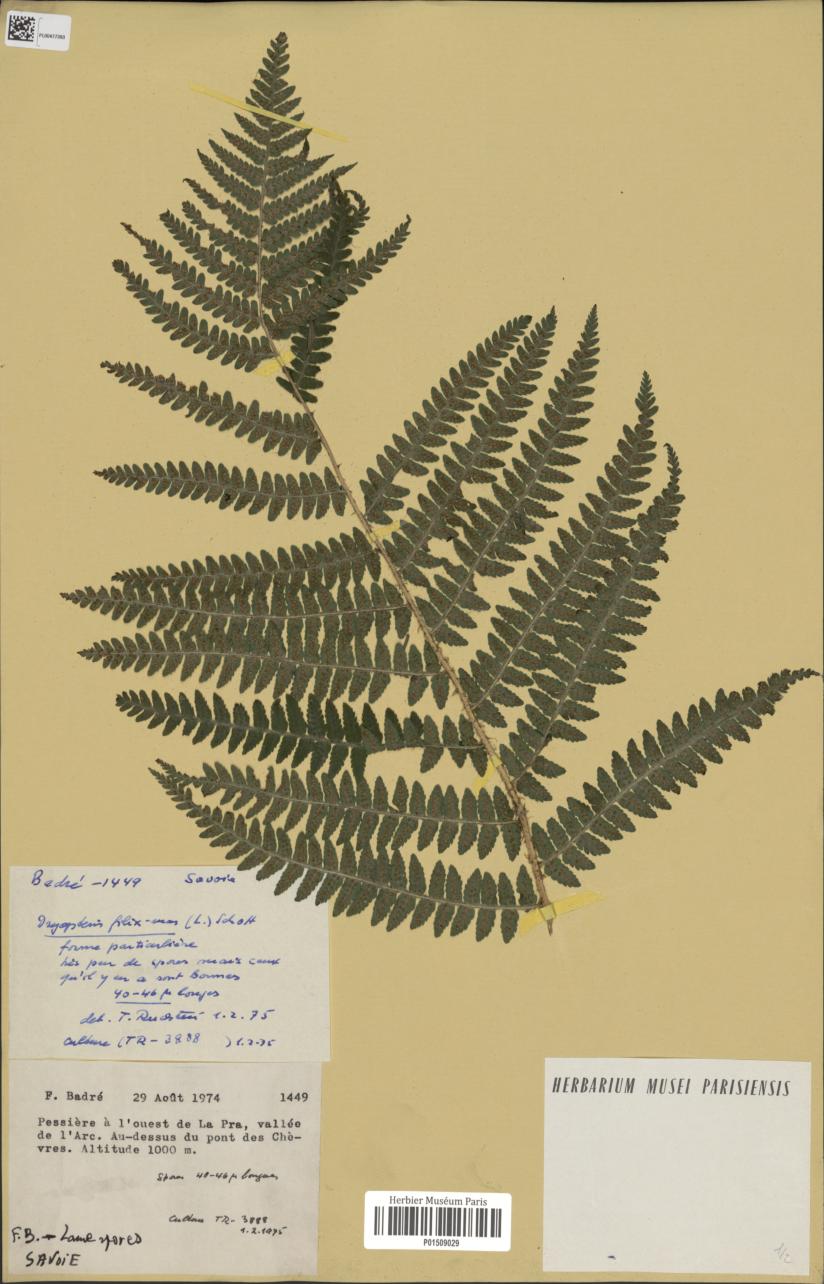 PL00477283
Badré - 1449 Savoie
Dryopteris filix-mas (L.) Schott
forme particulière
très peu de spores mais ceux
qu'il y en a sont bonnes
40-46 µ longes
det. T. 1.2.75
culture (TR - 3888 ) 1.2.75
F. Badré 29 Août 1974 1449
Pessière à l'ouest de La Pra, vallée
de l'Arc. Au-dessus du pont des Chè-
vres. Altitude 1000 m.
Spores 40-46 µ longues
Culture TR- 3888
1.2.1975
F.B. - Lame spores
SAVOIE
HERBARIUM MUSEI PARISIENSIS
Herbier Muséum Paris
P01509029
1/2